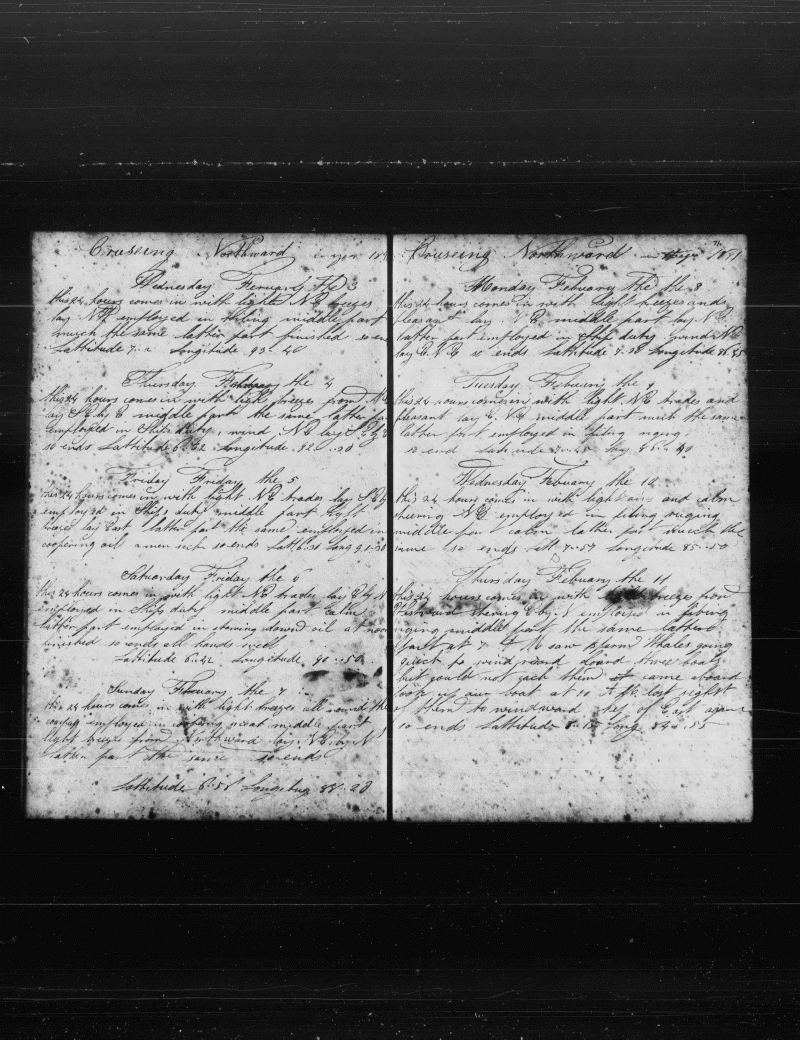 Cruseing Northward in year 18
Wednesday Feruary the 3
this 24 hours comes in with light N E breezes
lay N E employed in middle part
much the same latter part finished so en
Lattitude 7 Longitude 93 40
Thursday the 4
this 24 hours comes in with light breezes from N E
lay S E by E middle part the same latter pa
employed in Ships duty, wind N E lay S E by E
so ends Lattitude 6 22 Longitude 92 20
Friday Friday the 5
this 24 hours comes in with light N E trades lay S E by
employed in Ships duty middle part light
lay East latter part the same employed in
coopering oil so ends Latt 6 31 Long 91 31
Satuarday Friday the 6
this 24 hours comes in with light N E trades lay E by N
employed in Ships duty middle part calm
latter part employed in stowing down oil at noon
finished so ends all hands well
Lattitude 6 22 Longitude 90 50
Sunday Febuary the 7
this 24 hours comes in with light breezes all round the
compas employed in middle part
light breeze from Northward lay N E by N
latter part the same so ends
Lattitude 6 58 Longitug 88 20
Cruseing Northward 1871
Monday Febuary the the 8
this 24 hours comes in with light breezes and
pleasant lay E middle part lay N E
latter part employed in Ship duty wind N E
lay E N E so ends Lattitude 7 38 Longitude 86 45
Tuesday Febuary the 9
this 24 hours comes in with light N E trades and
plesant lay E N E middle part much the same
latter part employed in fixing riging
so ends Lattitude Long 85 40
Wednesday Febuary the 10
this 24 hours comes in with light airs and calm
stearing N E employed in fixing riging
middle part calm latter part much the
same so ends Latt 7 57 Longitude 85 50
Thursday Febuary the 11
this 24 hours comes in with breeze from
stearing E by S employed in fixing
riging middle part the same latter
part at 7 A M saw Sparm Whales going
quick to wind ward down three boats
but could not catch them came aboard
took up our boat at 10 A M lost sight
of them to windward
so ends Lattitude 8 Long 84 55